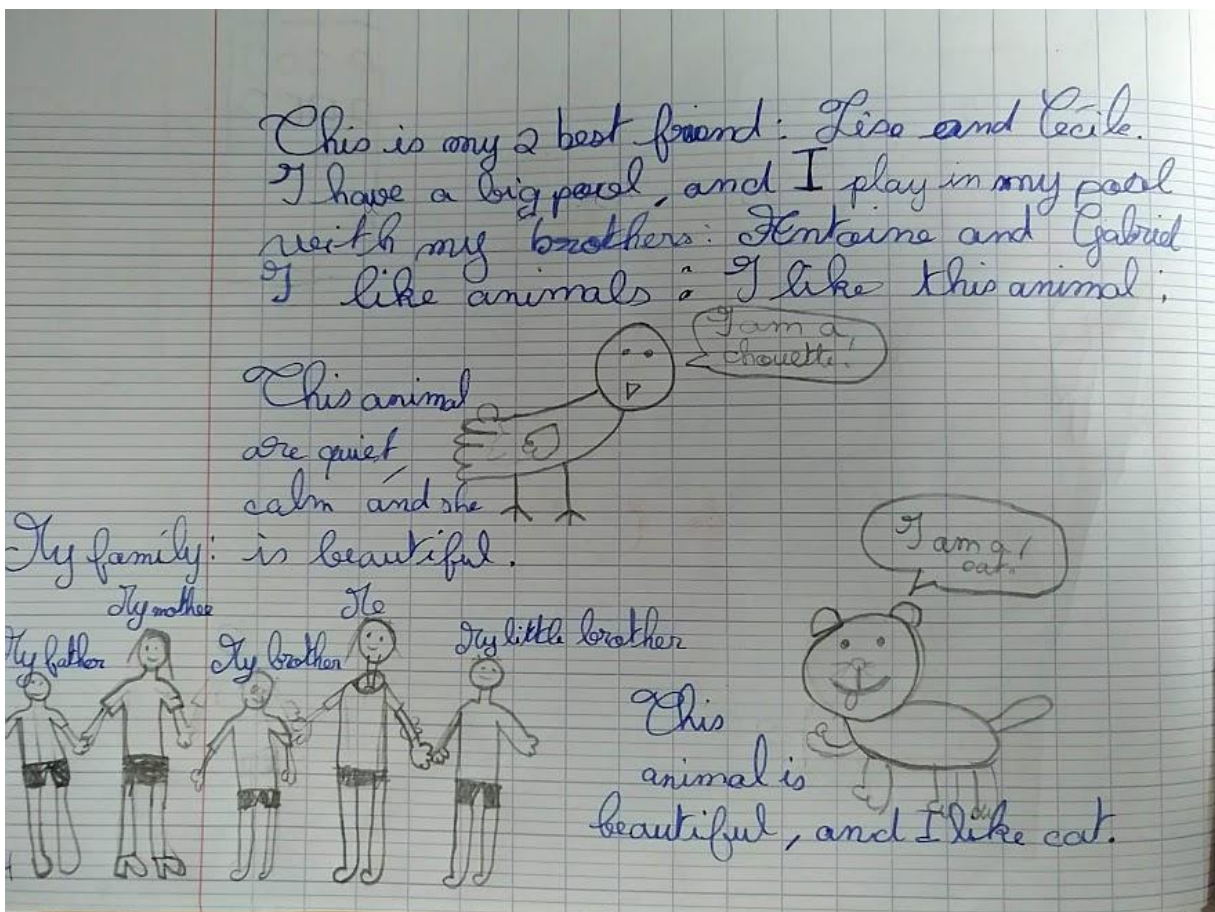 This is my 2 best friend: Lise and Cécile.
I have a big pool, and I play in my pool
with my brothers: Antoine and Gabriel
I like animals: I like this animal:
I am a
chouette!
This animal
are quiet,
calm and she
is beautiful.
My family:
My father
My mother
My brother
Me
My little brother
I am a
cat!
This
animal is
beautiful, and I like cat.